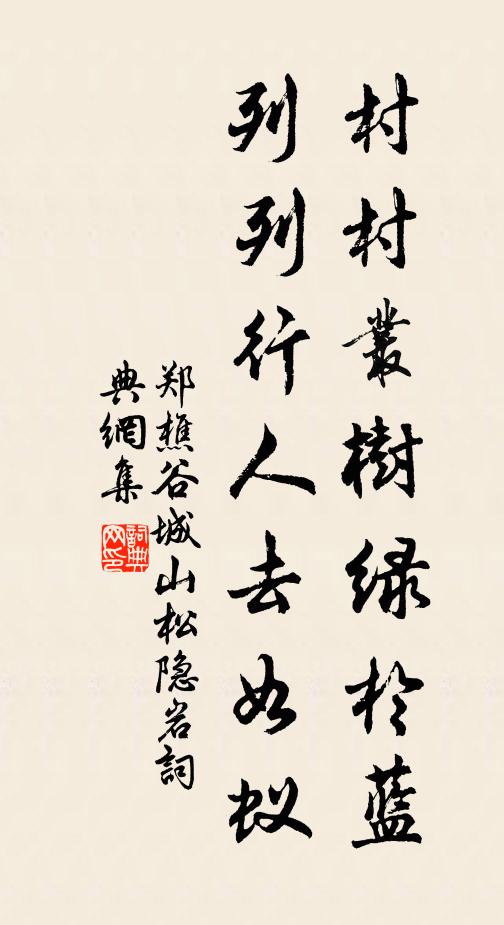 村村叢樹绿於藍
列列行人去如蚁
郑樵谷城山松隐岩詞
典網集
詞典
网印